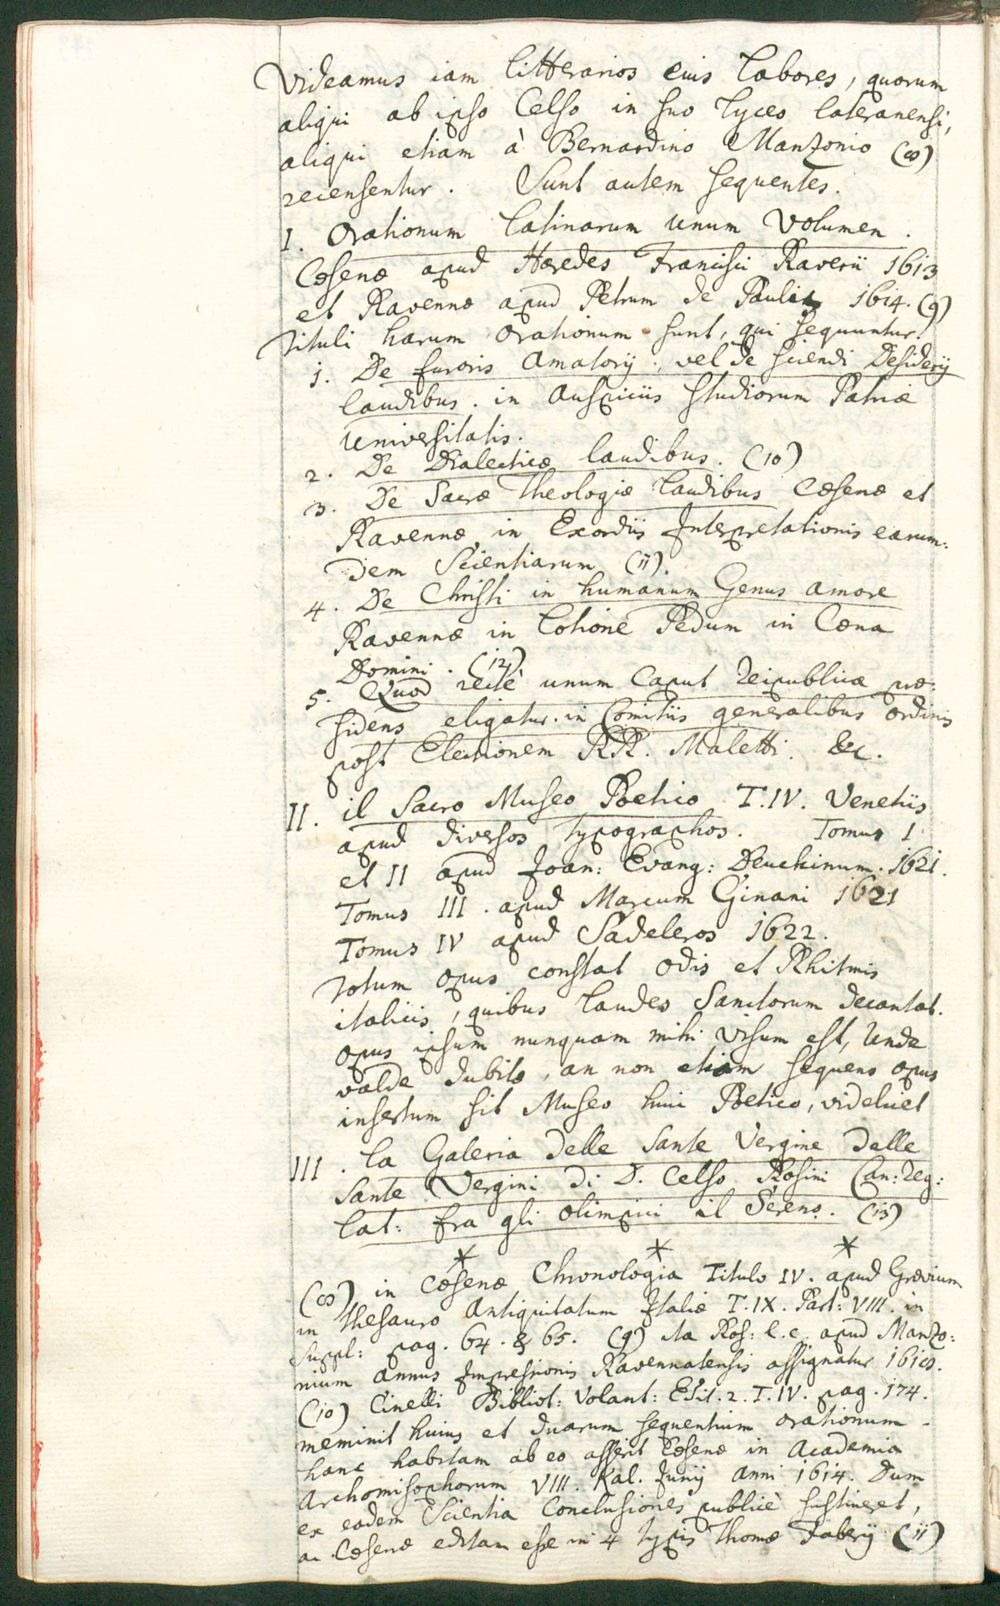 Videamus iam litterarios eius labores, quorum
aliqui ab ipso Celso in suo Lyceo lateranensi,
aliqui etiam à Bernardino Manzonio (8)
recensentur. Sunt autem sequentes.
I. Orationum latinarum unum Volumen.
Cæsenæ apud Hæredes Francisci Raverii 1613
et Ravennæ apud Petrum de Paulis 1614. (9)
Tituli harum orationum sunt, qui sequuntur.
1. De furoris Amatorij, vel de sciendi Desiderij
laudibus. in Auspiciis studiorum Patriæ
Universitatis.
2. De Dialecticæ laudibus. (10)
3. De Sacræ Theologiæ laudibus Cæsenæ et
Ravennæ in Exordiis Interpretationis earum-
dem Scientiarum (11).
4. De Christi in humanum Genus amore
Ravennæ in Lotione Pedum in Cœna
Domini. (12)
5. Quod rectè unum Caput Reipublicæ præ:
sidens eligatur. in Comitiis generalibus ordinis
post Electionem RR. Maletti. &c.
II. il Sacro Museo Poetico T. IV. Venetiis
apud diversos typographos. Tomus I
et II apud Joan: Evang: Deuchinum. 1621.
Tomus III. apud Marcum Ginami 1621
Tomus IV apud Sadeleros 1622.
Totum opus constat odis et Rhitmis
italicis, quibus laudes Sanctorum decantat.
opus ipsum nunquam mihi visum est, Unde
valde dubito, an non etiam sequens opus
insertum sit Museo huic Poetico, videlicet
III. la Galeria delle sante Vergine dalle
Sante Vergini di D. Celso Rosini Can: Reg:
Lat: fra gli olimpici il Sereno. (13)
* * *
(8) in Cæsenæ Chronologia Titulo IV. apud Grævium
in Thesauro Antiquitatum Italiæ T. IX. Part: VIII. in
suppl: pag. 64. & 65. (9) ita Ros: l. c. apud Manzo:
nium annus Impressionis Ravennatensis assignatur 1618.
(10) Cinelli Bibliot: Volant: Edit. 2. T. IV. pag. 174.
meminit huius et duarum sequentium orationum.
hanc habitam ab eo asserit Cæsenæ in Academia
Archomisophorum VIII. Kal. Junij anni 1614. Dum
ex eadem Scientia Conclusiones publicè sustineret,
ac Cæsenæ editam esse in 4 typis Thomæ Faberij (11)